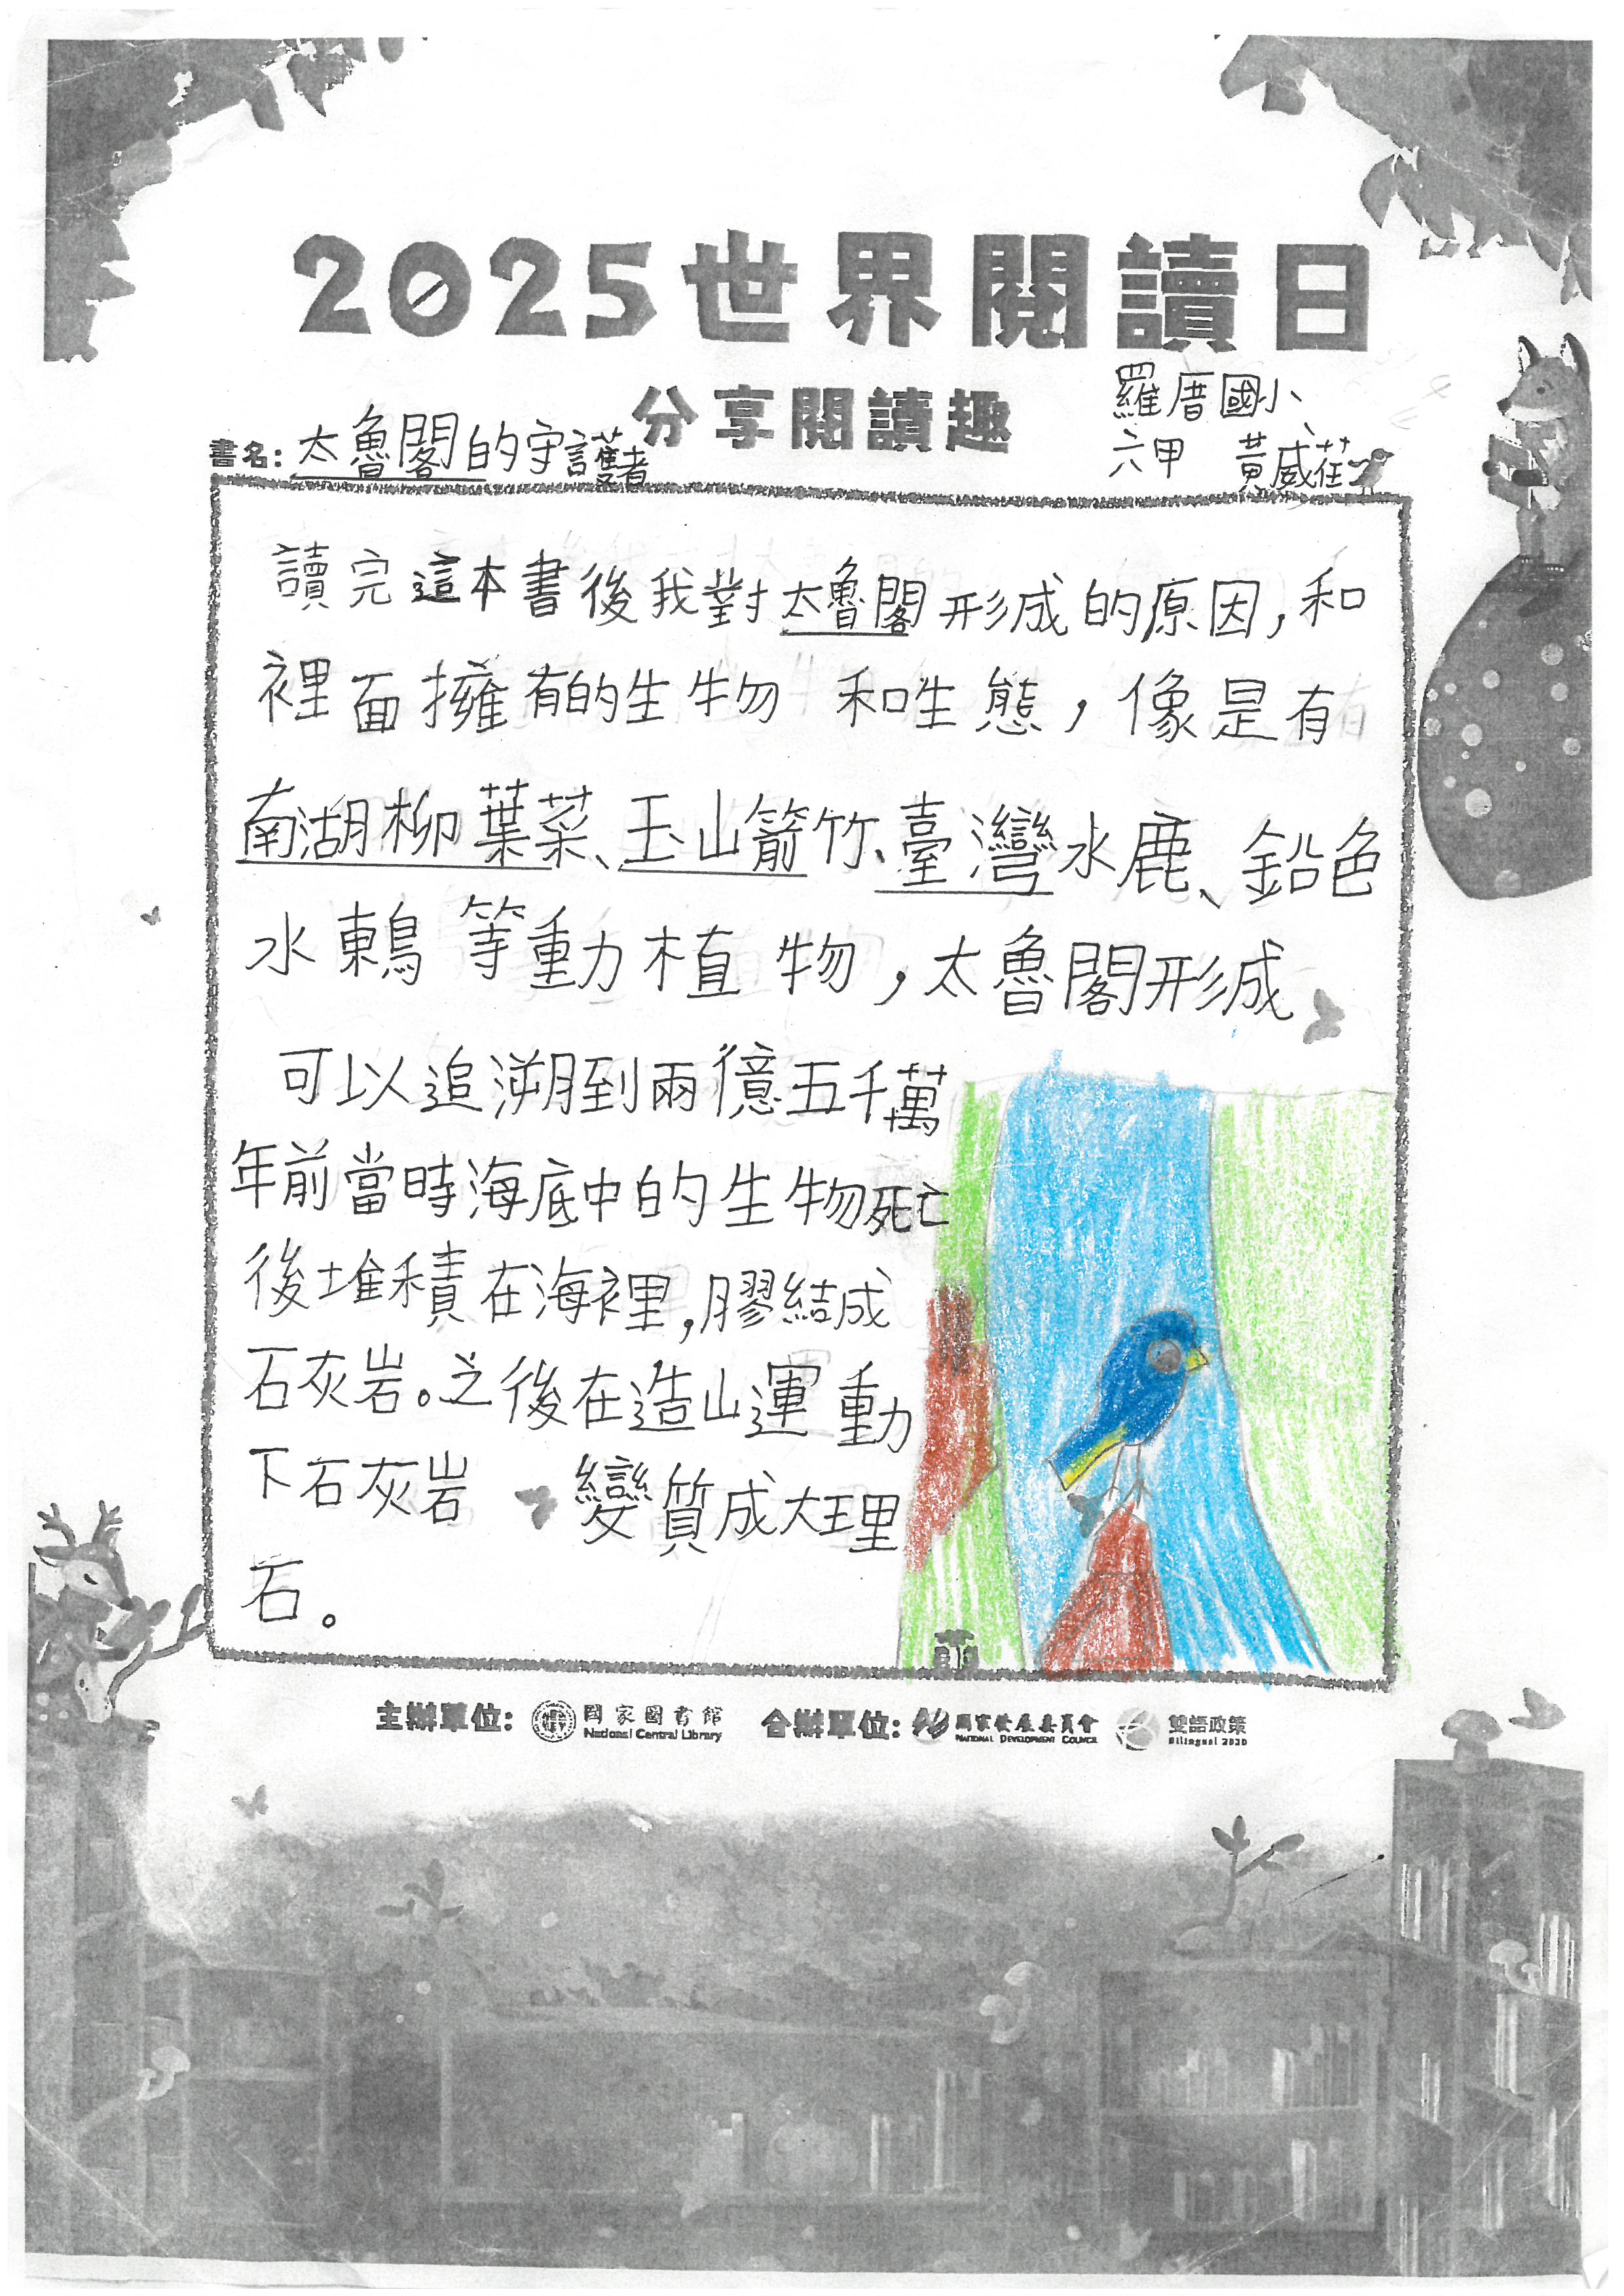 2025世界閱讀日
分享閱讀趣
羅厝國小
六甲 黃威荏
書名:太魯閣的守護者
讀完這本書後我對太魯閣形成的原因,和
裡面擁有的生物 和生態,像是有
南湖柳葉菜、玉山箭竹、臺灣水鹿、鉛色
水鶇等動植物,太魯閣形成
可以追溯到兩億五千萬
年前當時海底中的生物死亡
後堆積在海裡,膠結成
石灰岩。之後在造山運動
下石灰岩 變質成大理
石。
主辦單位: 國家圖書館 National Central Library 合辦單位: 國家發展委員會 NATIONAL DEVELOPMENT COUNCIL 雙語政策 Bilingual 2030